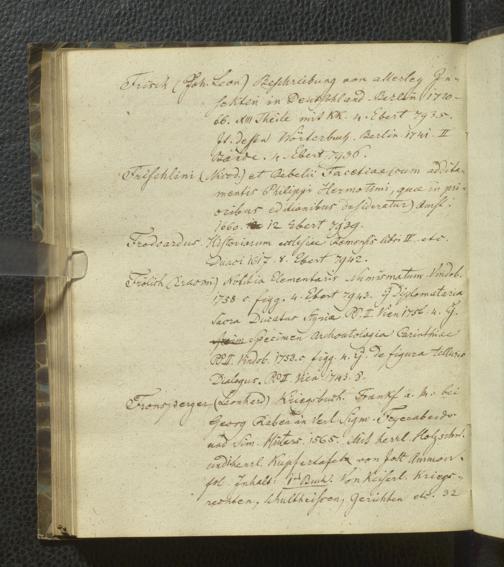 Frisch (Joh. Leon) Beschreibung von allerley In-
sekten in Deutschland. Berlin 1720-
66. XIII Theile mit KK. 4. Ebert 7935.
It. dessen Wörterbuch. Berlin 1741. II
Bände. 4. Ebert 7936.
Frischlini (Nicod.) et Bebelii Facetiae (cum addita-
mentis Philippi Hermotimi, quae in pri-
oribus editionibus desideratur) Amst.
1660. 12 Ebert 7939.
Frodoardus Historiarum ecclesiae Remensis libri II. etc.
Duaci 1617. 8. Ebert 7942.
Frölich (Erasmi) Notitia Elementaris Numismatum Vindob.
1758 c. figg. 4. Ebert 7943. Ej Diplomataria
Sacra Ducatus Styria PP. II. Vien 1756. 4. Ej.
Specimen Archontologia Carinthiae
PP. II. Vindob. 1758. c. figg. 4. Ej. de figura telluris
Dialogus. PP. II. Vien. 1743. 8.
Fronsperger (Leonhard) Kriegsbuch. Frankf. a. M. bei
Georg Raben in Verl. Sigm. Feyerabends
und Sim. Hüters. 1565. Mit herrl. Holzschn.
und herrl. Kupfertafeln von Jost Amman.
fol. Inhalt: 1tes Buch. Von Keiserl. Kriegs-
rechten, Schultheissen, Gerichten etc. 32